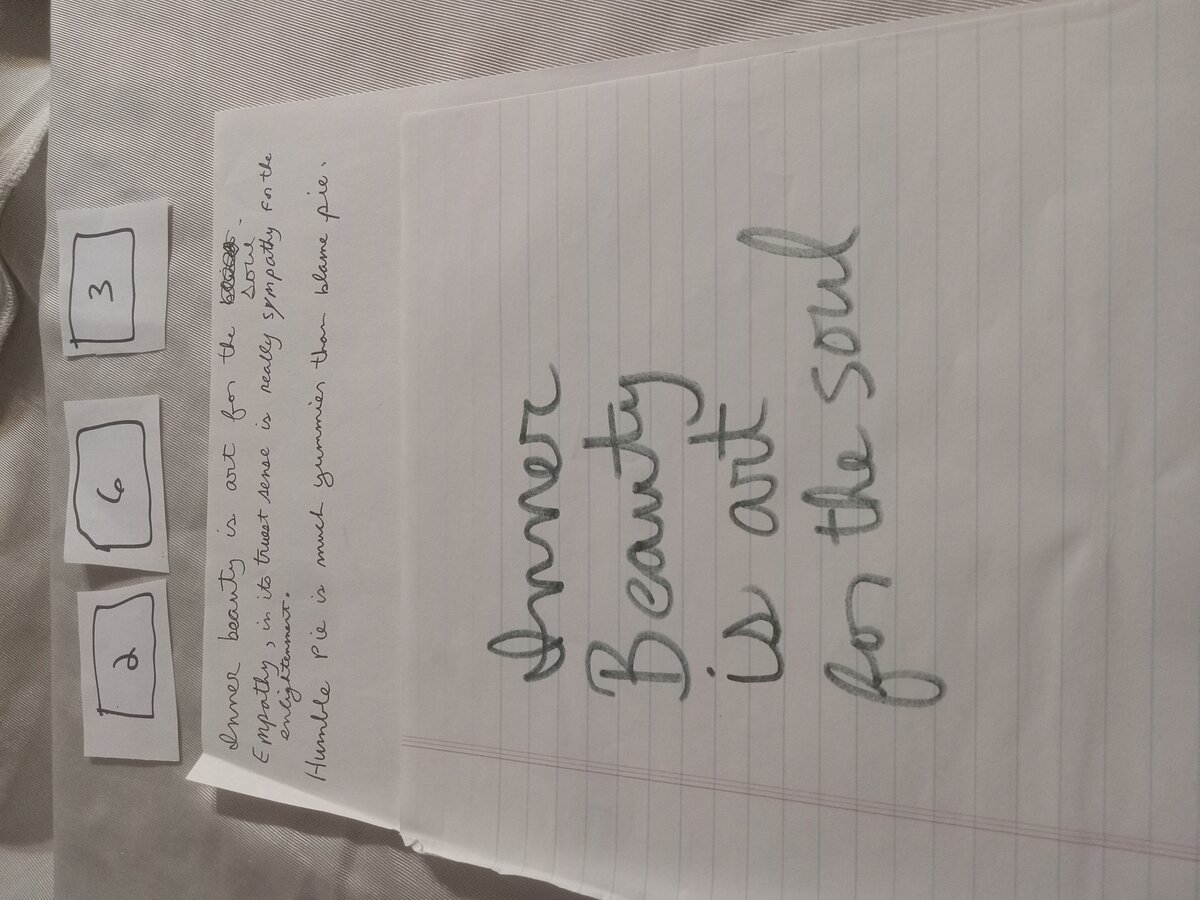 2 6 3
Inner beauty is art for the
soul.
Empathy, in its truest sense is really sympathy for the
enlightenment.
Humble Pie is much yummies than blame pie.
Inner
Beauty
is art
for the soul